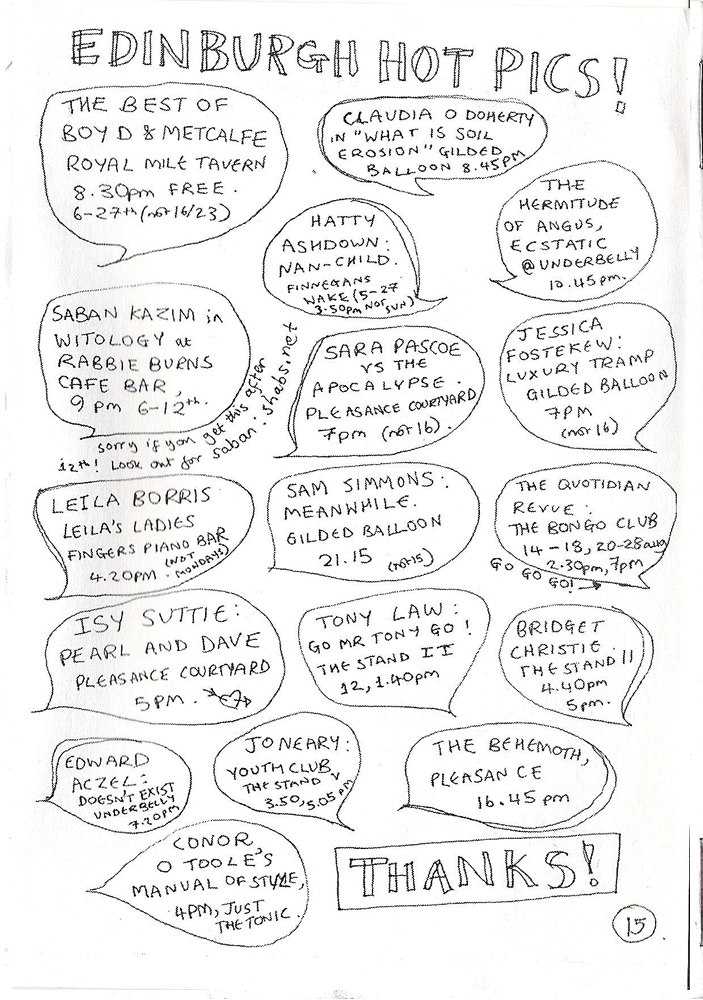 EDINBURGH HOT PICS!
THE BEST OF
BOYD & METCALFE
ROYAL MILE TAVERN
8.30pm FREE.
6-27th (not 16/23)
CLAUDIA O DOHERTY
IN "WHAT IS SOIL
EROSION" GILDED
BALLOON 8.45PM
THE
HERMITUDE
OF ANGUS,
ECSTATIC
@UNDERBELLY
10.45pm.
HATTY
ASHDOWN:
NAN-CHILD.
FINNEGANS
WAKE (5-27
3.50PM NOT SUN)
SABAN KAZIM in
WITOLOGY at
RABBIE BURNS
CAFE BAR,
9 pm 6-12th.
sorry if you get this after
12th! Look out for saban.shabs.net
SARA PASCOE
VS THE
APOCALYPSE.
PLEASANCE COURTYARD
7pm (not 16).
JESSICA
FOSTEKEW:
LUXURY TRAMP
GILDED BALLOON
7PM
(not 16)
LEILA BORRIS
LEILA'S LADIES
FINGERS PIANO BAR
4.20PM. (NOT
MONDAYS)
SAM SIMMONS:
MEANWHILE.
GILDED BALLOON
21.15 (not 15)
THE QUOTIDIAN
REVUE:
THE BONGO CLUB
14-18, 20-28 aug
2.30pm, 7pm
GO GO GO!
GO!
ISY SUTTIE:
PEARL AND DAVE
PLEASANCE COURTYARD
5PM.
TONY LAW:
GO MR TONY GO!
THE STAND II
12, 1.40pm
BRIDGET
CHRISTIE.
THE STAND II
4.40pm
5pm.
EDWARD
ACZEL:
DOESN'T EXIST
UNDERBELLY
7.20PM
JO NEARY:
YOUTH CLUB,
THE STAND V
3.50, 5.05
THE BEHEMOTH,
PLEASANCE
16.45 pm
CONOR,
O TOOLE'S
MANUAL OF STYLE,
4PM, JUST
THE TONIC.
THANKS!
15